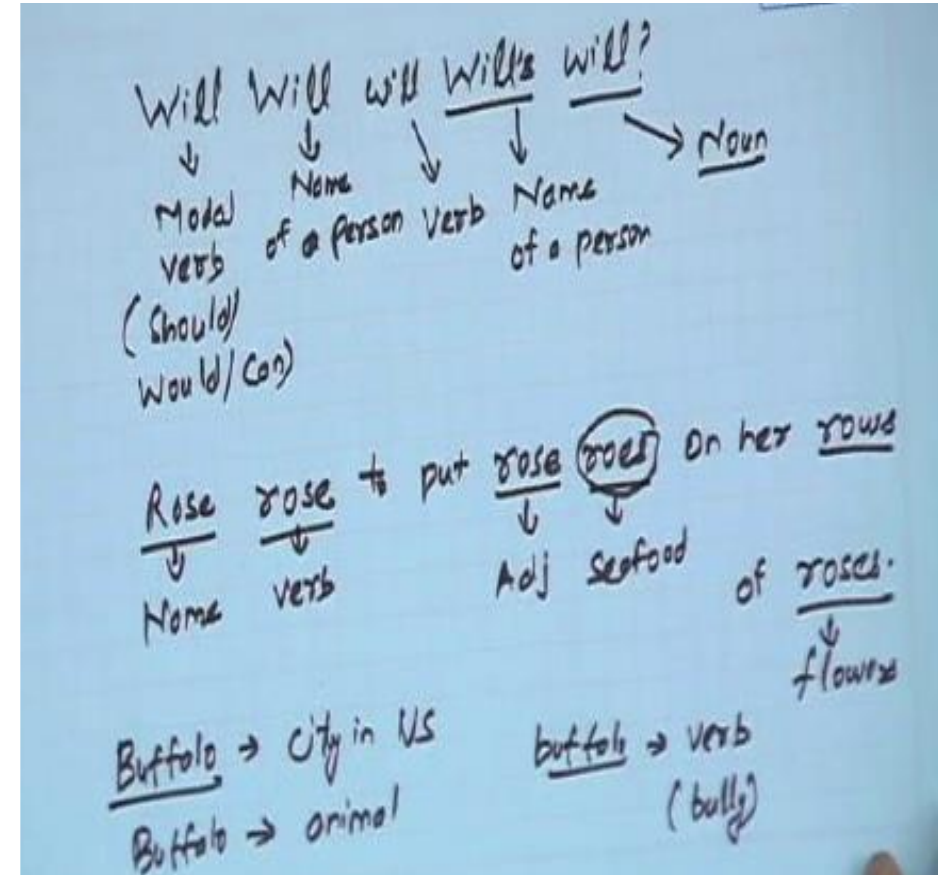 Will Will will Will's will?
Modal verb (Should/ Would/Can)
Name of a person
Verb
Name of a person
Noun
Rose rose to put rose roes on her rows
of roses.
Name
verb
Adj
Seafood
flowers
Buffalo → City in US
Buffalo → animal
buffalo → verb
(bully)